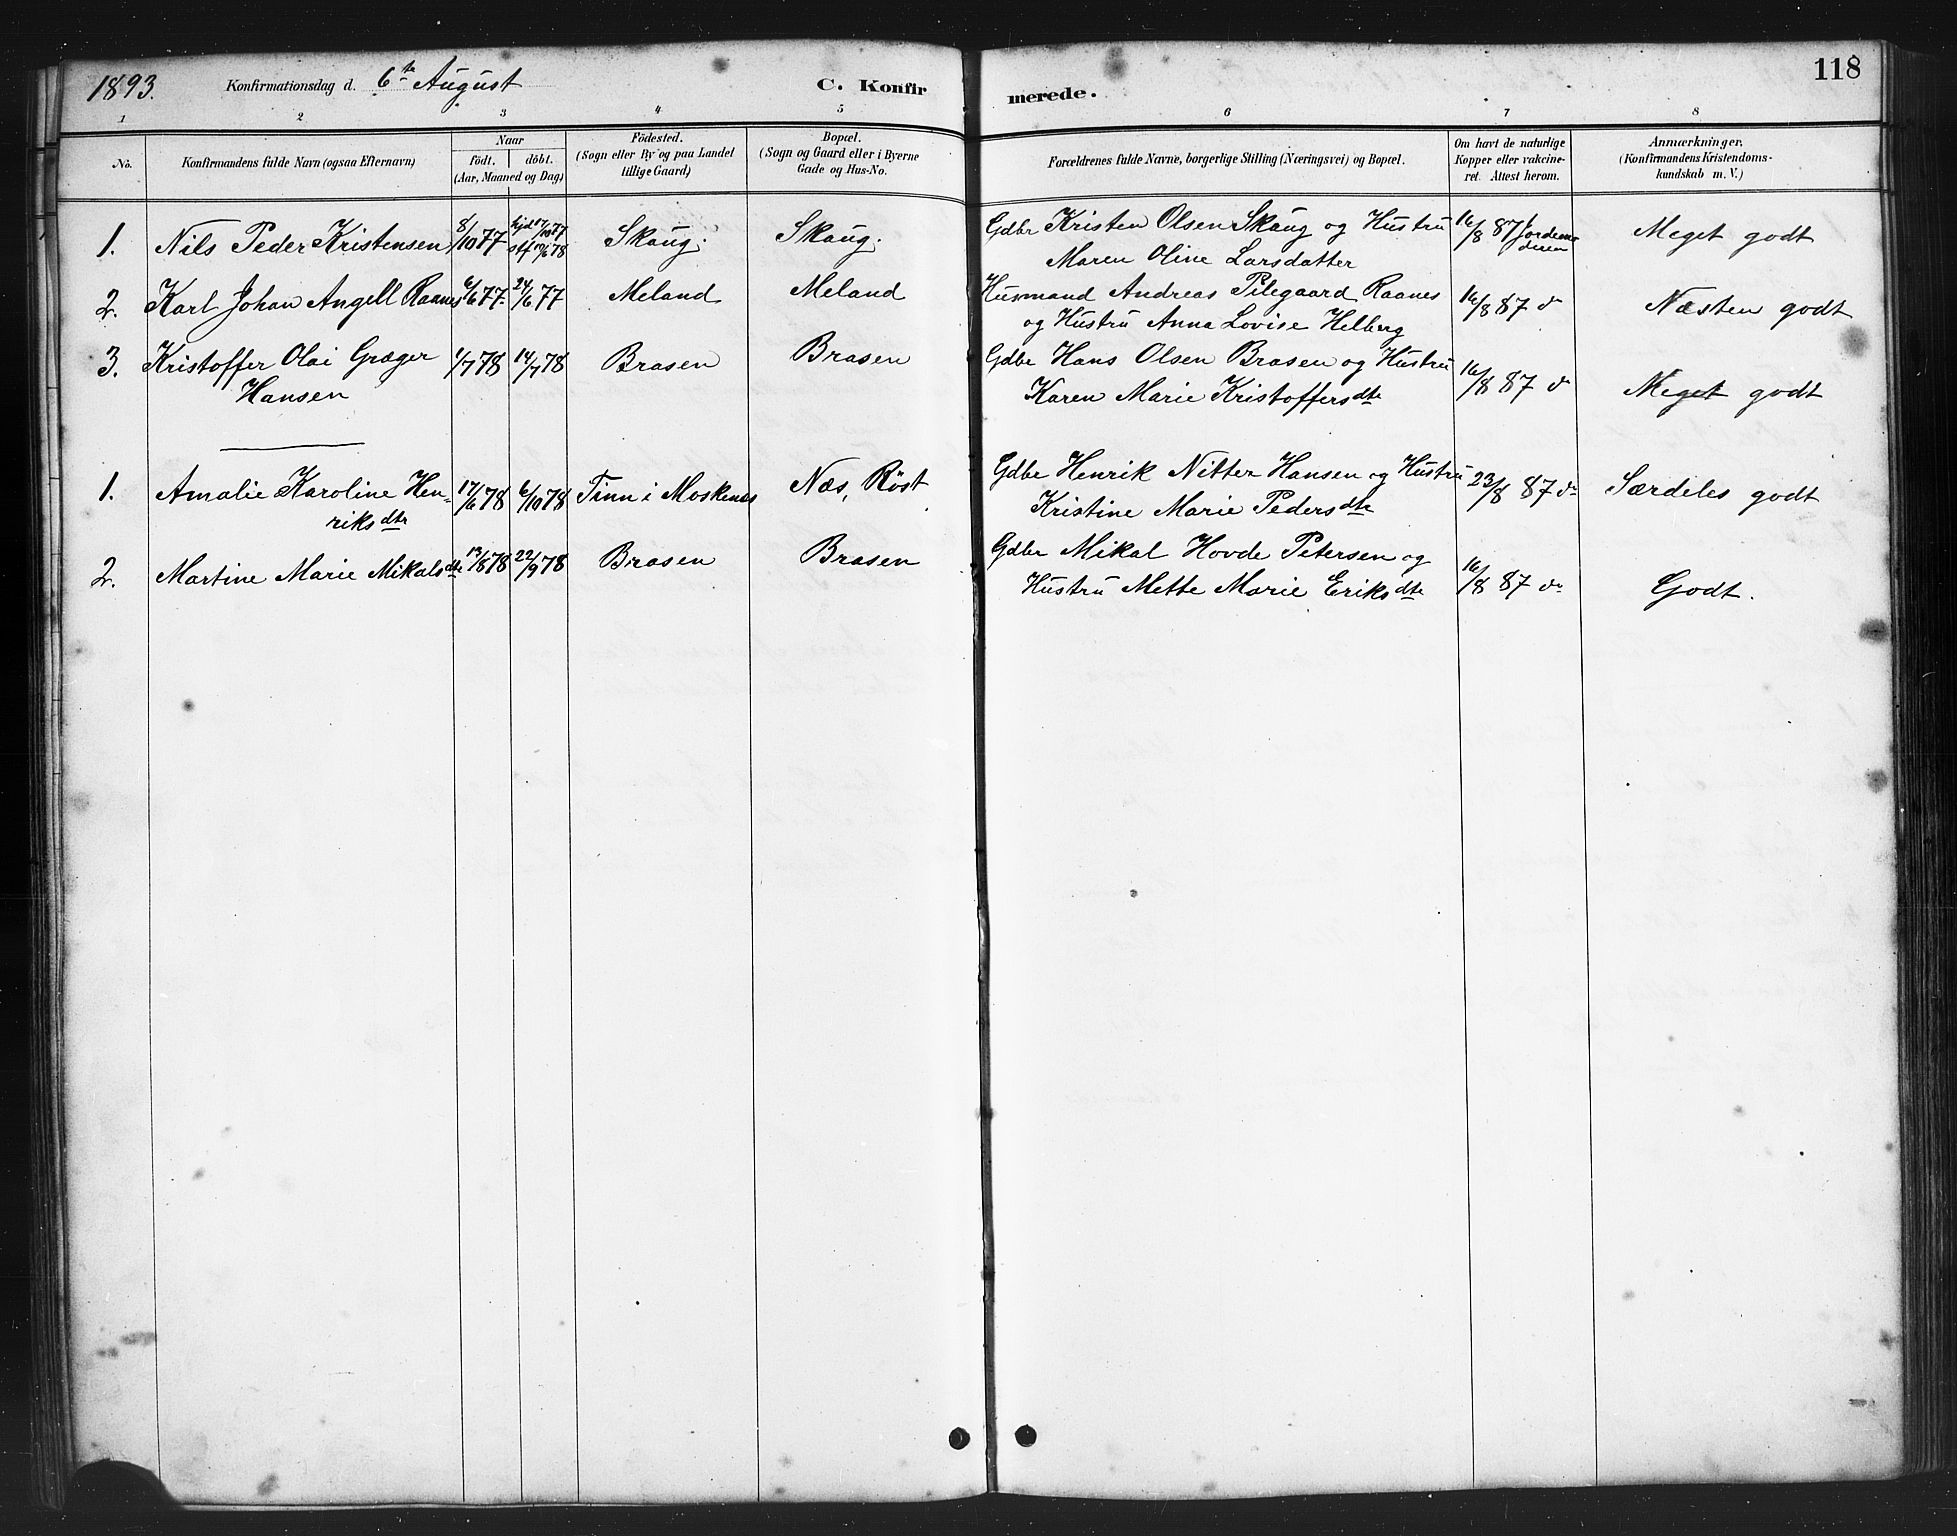 1893. Konfirmationsdag d. 6te August C. Konfirmerede. 118
1 2 3 4 5 6 7 8
No. Konfirmandens fulde Navn (ogsaa Efternavn) Naar född. döbt. (Aar, Maaned og Dag) Födested. (Sogn eller By og paa Landet tillige Gaard) Bopæl. (Sogn og Gaard eller i Byerne Gade og Hus-No. Forældrenes fulde Navne, borgerlige Stilling (Næringsvei) og Bopæl. Om havt de naturlige Kopper eller vakcineret. Attest herom. Anmærkninger. (Konfirmandens Kristendomskundskab m. V.)
1. Nils Peder Kristensen 8/10 77 hjd 17/10 77 stf 10/6 78 Skaug. Skaug. Gdbr Kristen Olsen Skaug og Hustru 16/8 87 Jordemoderen Meget godt
Maren Oline Larsdatter
2. Karl Johan Angell Raanes 6/6 77 24/6 77 Meland Meland Husmand Andreas Pilegaard Raanes 16/8 87 do Næsten godt
og Hustru Anna Lovise Helberg
3. Kristoffer Olai Græger 1/7 78 14/7 78 Brasen Brasen Gdbr Hans Olsen Brasen og Hustru 16/8 87 do Meget godt
Hansen Karen Marie Kristoffersdtr
1. Amalie Karoline Hen- 17/6 78 6/10 78 Tinn i Moskenes Næs, Röst Gdbr Henrik Nitter Hansen og Hustru 23/8 87 do Særdeles godt
riksdtr Kristine Marie Pedersdtr
2. Martine Marie Mikalsdtr 13/8 78 22/9 78 Brasen Brasen Gdbr Mikal Hovde Petersen og 16/8 87 do Godt.
Hustru Mette Marie Eriksdtr